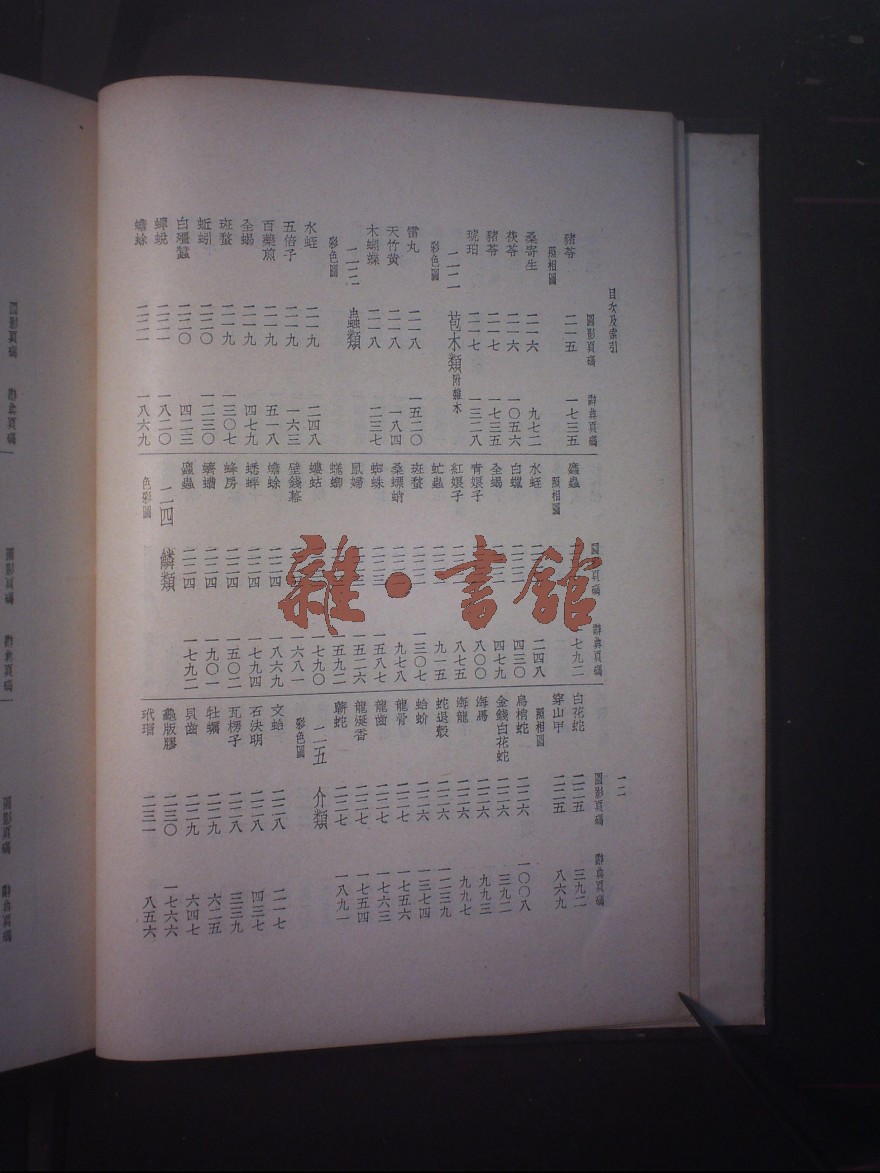 目次及索引
圖影頁碼 辭典頁碼
豬苓 二一五 一七三五
照相圖
桑寄生 二一六 九七二
茯苓 二一六 一〇五六
豬苓 二一七 一七三五
琥珀 二一七 一三二八
二二 苞木類附雜木
彩色圖
雷丸 二一八 一五二〇
天竹黃 二一八 一八四
木蝴蝶 二一八 二三七
二三 蟲類
彩色圖
水蛭 二一九 二四八
五倍子 二一九 一六三
百藥煎 二一九 五一八
全蝎 二一九 四七九
斑蝥 二一九 一三〇七
蚯蚓 二二〇 一二三〇
白殭蠶 二二〇 四二三
蟬蛻 二二一 一八二〇
蟾蜍 二二一 一八六九
圖影頁碼 辭典頁碼
蟲 七九二
照相圖
水蛭 二四八
白蠟 四三〇
全蝎 四七九
青娘子 八〇〇
紅娘子 八七五
虻蟲 九一五
斑蝥 一三〇七
桑螵蛸 九七八
蜘蛛 一五八七
鼠婦 一五二六
蜣螂 五九二
螻蛄 七九〇
壁錢幕 六八一
蟾蜍 二二四 一八六九
蟋蟀 二二四 一七九四
蜂房 二二四 一五〇二
蠐螬 二二四 一九〇一
蟲 二二四 一七九二
二四 鱗類
色彩圖
一二
圖影頁碼 辭典頁碼
白花蛇 二二五 三九二
穿山甲 二二五 八六九
照相圖
烏梢蛇 二二六 一〇〇八
金錢白花蛇 二二六 三九二
海馬 二二六 九九三
海龍 二二六 九九七
蛇退殼 二二六 一二三九
蛤蚧 二二六 一三七四
龍骨 二二七 一七五六
龍齒 二二七 一七六三
龍涎香 二二七 一七五四
蘄蛇 二二七 一八九一
二五 介類
彩色圖
文蛤 二二八 二一七
石決明 二二八 四三七
瓦楞子 二二八 三三九
牡蠣 二二九 六二五
貝齒 二二九 六四七
龜版膠 二三〇 一七六六
玳瑁 二三一 八五六
雜·書館
圖影頁碼 辭典頁碼
圖影頁碼 辭典頁碼
圖影頁碼 辭典頁碼